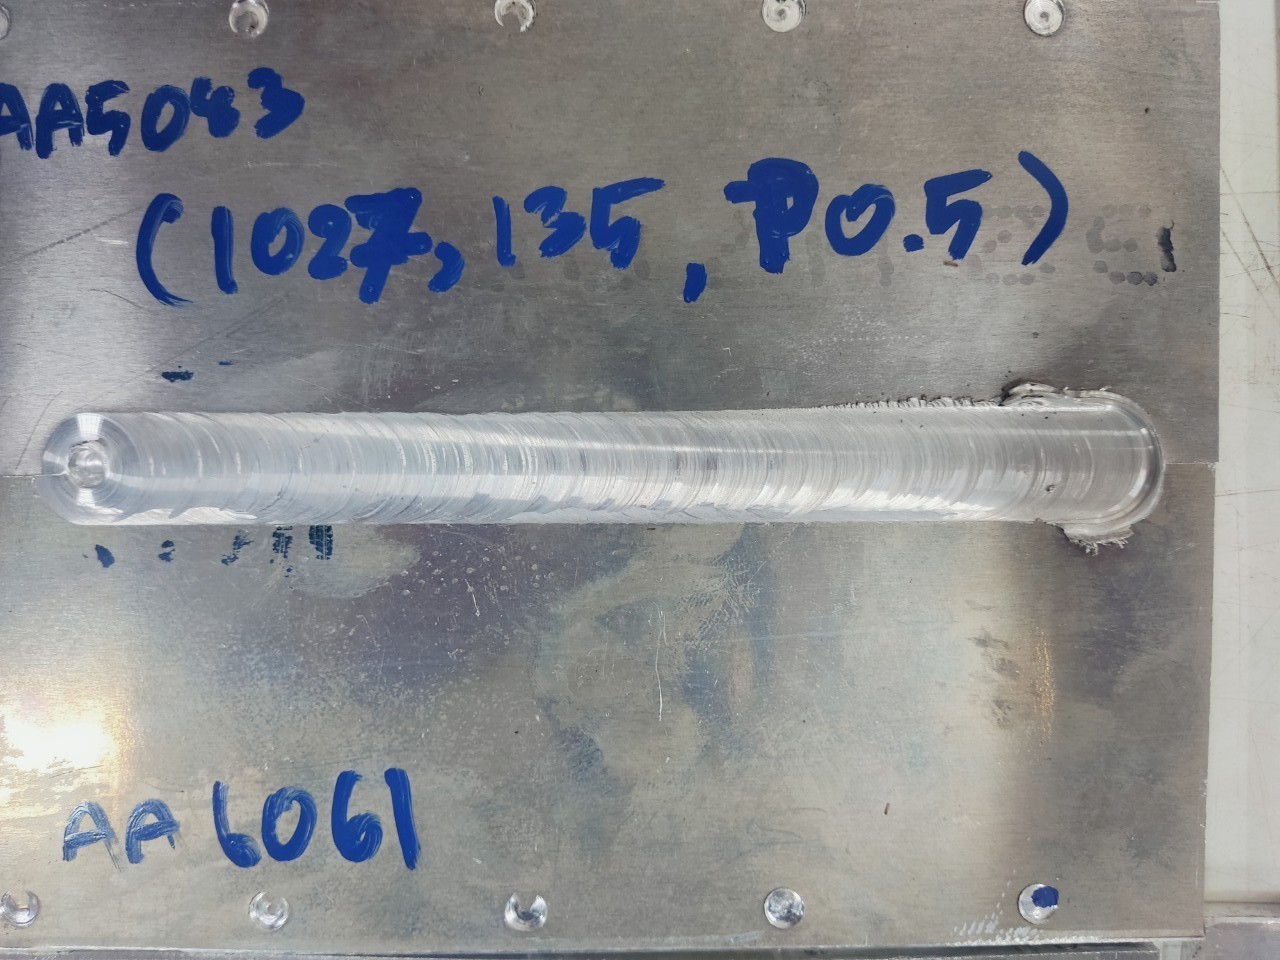 AA5083
(1027, 135, P0.5)
AA6061